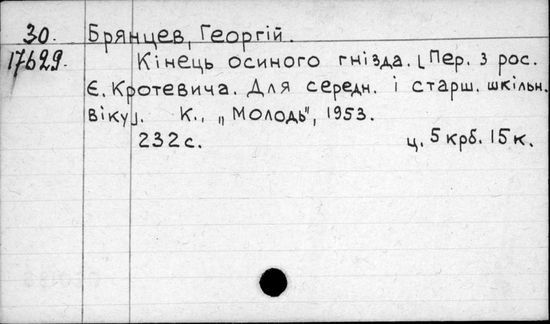 30. Брянцев, Георгій.
17629. Кінець осиного гнізда. [Пер. з рос.
Є. Кротевича. Для середн. і старш. шкільн.
віку]. К., „Молодь", 1953.
232 с. ц. 5 крб. 15 к.